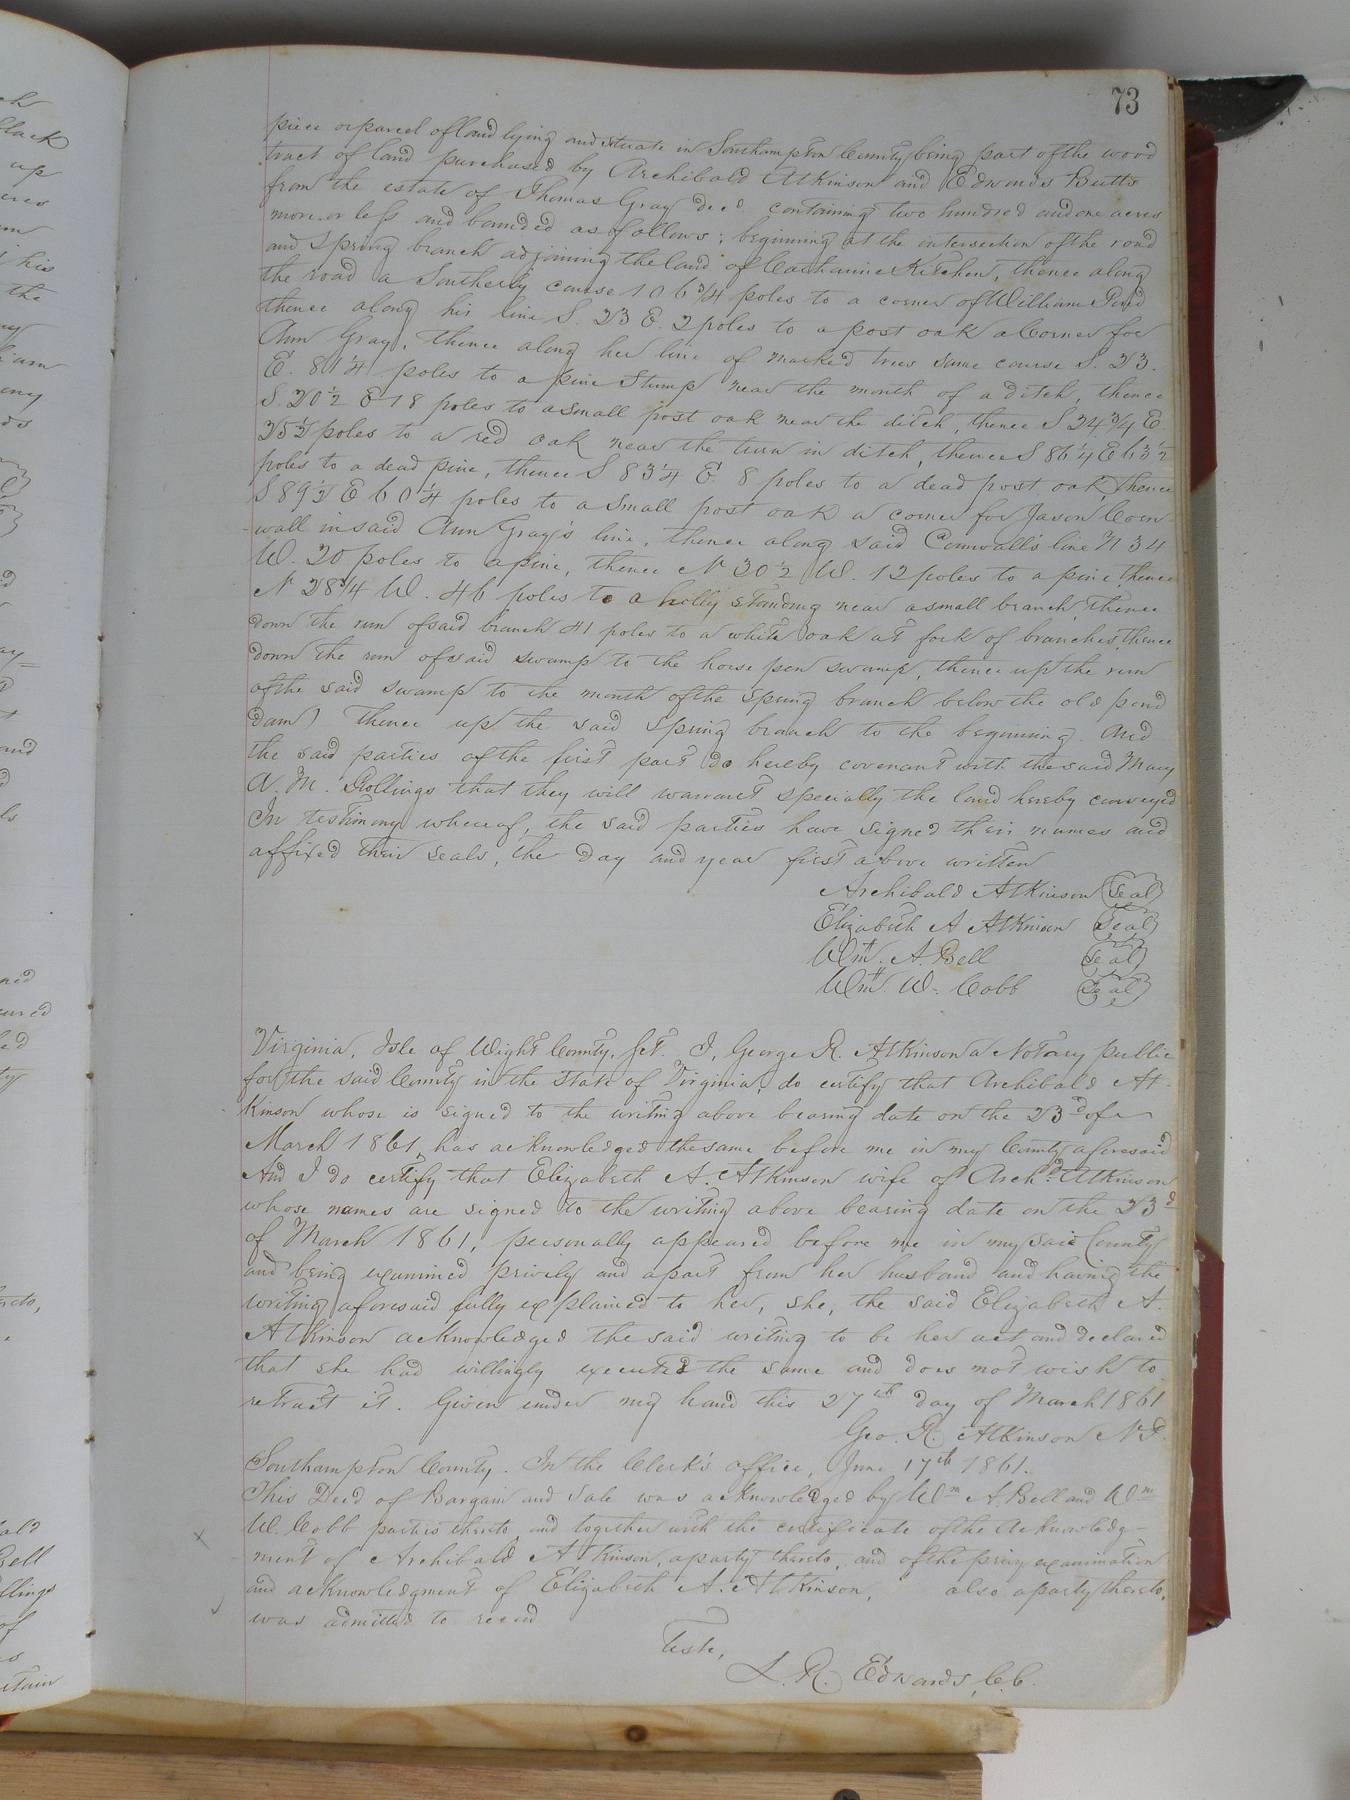 73
piece or parcel of land lying and situate in Southampton County being part of the wood
tract of land purchased by Archibald Atkinson and Edwards Butts
from the estate of Thomas Gray decd. containing two hundred and one acres
more or less and bounded as follows; beginning at the intersection of the road
and Spring branch adjoining the land of Catharine Kitchen, thence along
the road a Southerly course 106 3/4 poles to a corner of William Pond
thence along his line S. 23 E. 2 poles to a post oak a Corner for
Ann Gray, thence along her line of marked trees same course S. 23.
E. 81 1/4 poles to a pine Stump near the mouth of a ditch, thence
S. 20 1/2 E 18 poles to a small post oak near the ditch, thence S 24 3/4 E.
25 1/2 poles to a red oak near the turn in ditch, thence S 86 1/4 E 63 1/2
poles to a dead pine, thence S 83 1/4 E. 8 poles to a dead post oak, thence
S 89 1/2 E 60 1/4 poles to a small post oak a corner for Jason Corn-
-wall in said Ann Gray's line, thence along said Cornwall's line N 34
W. 20 poles to a pine, thence N 30 1/2 W. 12 poles to a pine, thence
N 28 3/4 W. 46 poles to a holly standing near a small branch, thence
down the run of said branch 41 poles to a white oak at fork of branches, thence
down the run of said swamp to the horse pen swamp, thence up the run
of the said swamp to the mouth of the spring branch below the old pond
dam) thence up the said spring branch to the beginning. And
the said parties of the first part do hereby covenant with the said Mary
A. M. Gollings that they will warrant specially the land hereby conveyed
In testimony whereof, the said parties have signed their names and
affixed their seals, the day and year first above written
Archibald Atkinson (Seal)
Elizabeth A Atkinson (Seal)
Wm. A. Bell (Seal)
Wm. W. Cobb (Seal)
Virginia, Isle of Wight County, Sct. I, George R. Atkinson a Notary public
for the said County in the State of Virginia, do certify that Archibald At-
kinson whose is signed to the writing above bearing date on the 23d of
March 1861, has acknowledged the same before me in my County aforesaid
And I do certify that Elizabeth A. Atkinson wife of Archd. Atkinson
whose names are signed to the writing above bearing date on the 23d
of March 1861, personally appeared before me in my said County
and being examined privily and apart from her husband and having the
writing aforesaid fully explained to her, she, the said Elizabeth A.
Atkinson acknowledged the said writing to be her act and declared
that she had willingly executed the same and does not wish to
retract it. Given under my hand this 27th day of March 1861
Geo. R. Atkinson N.P.
Southampton County. In the Clerk's office, June 17th 1861.
This Deed of Bargain and Sale was acknowledged by Wm A Bell and Wm
W. Cobb parties thereto, and together with the certificate of the acknowledg-
ment of Archibald Atkinson, a party thereto, and of the privy examination
and acknowledgment of Elizabeth A. Atkinson, also a party thereto,
was admitted to record
Teste,
L. R. Edwards, C.C.